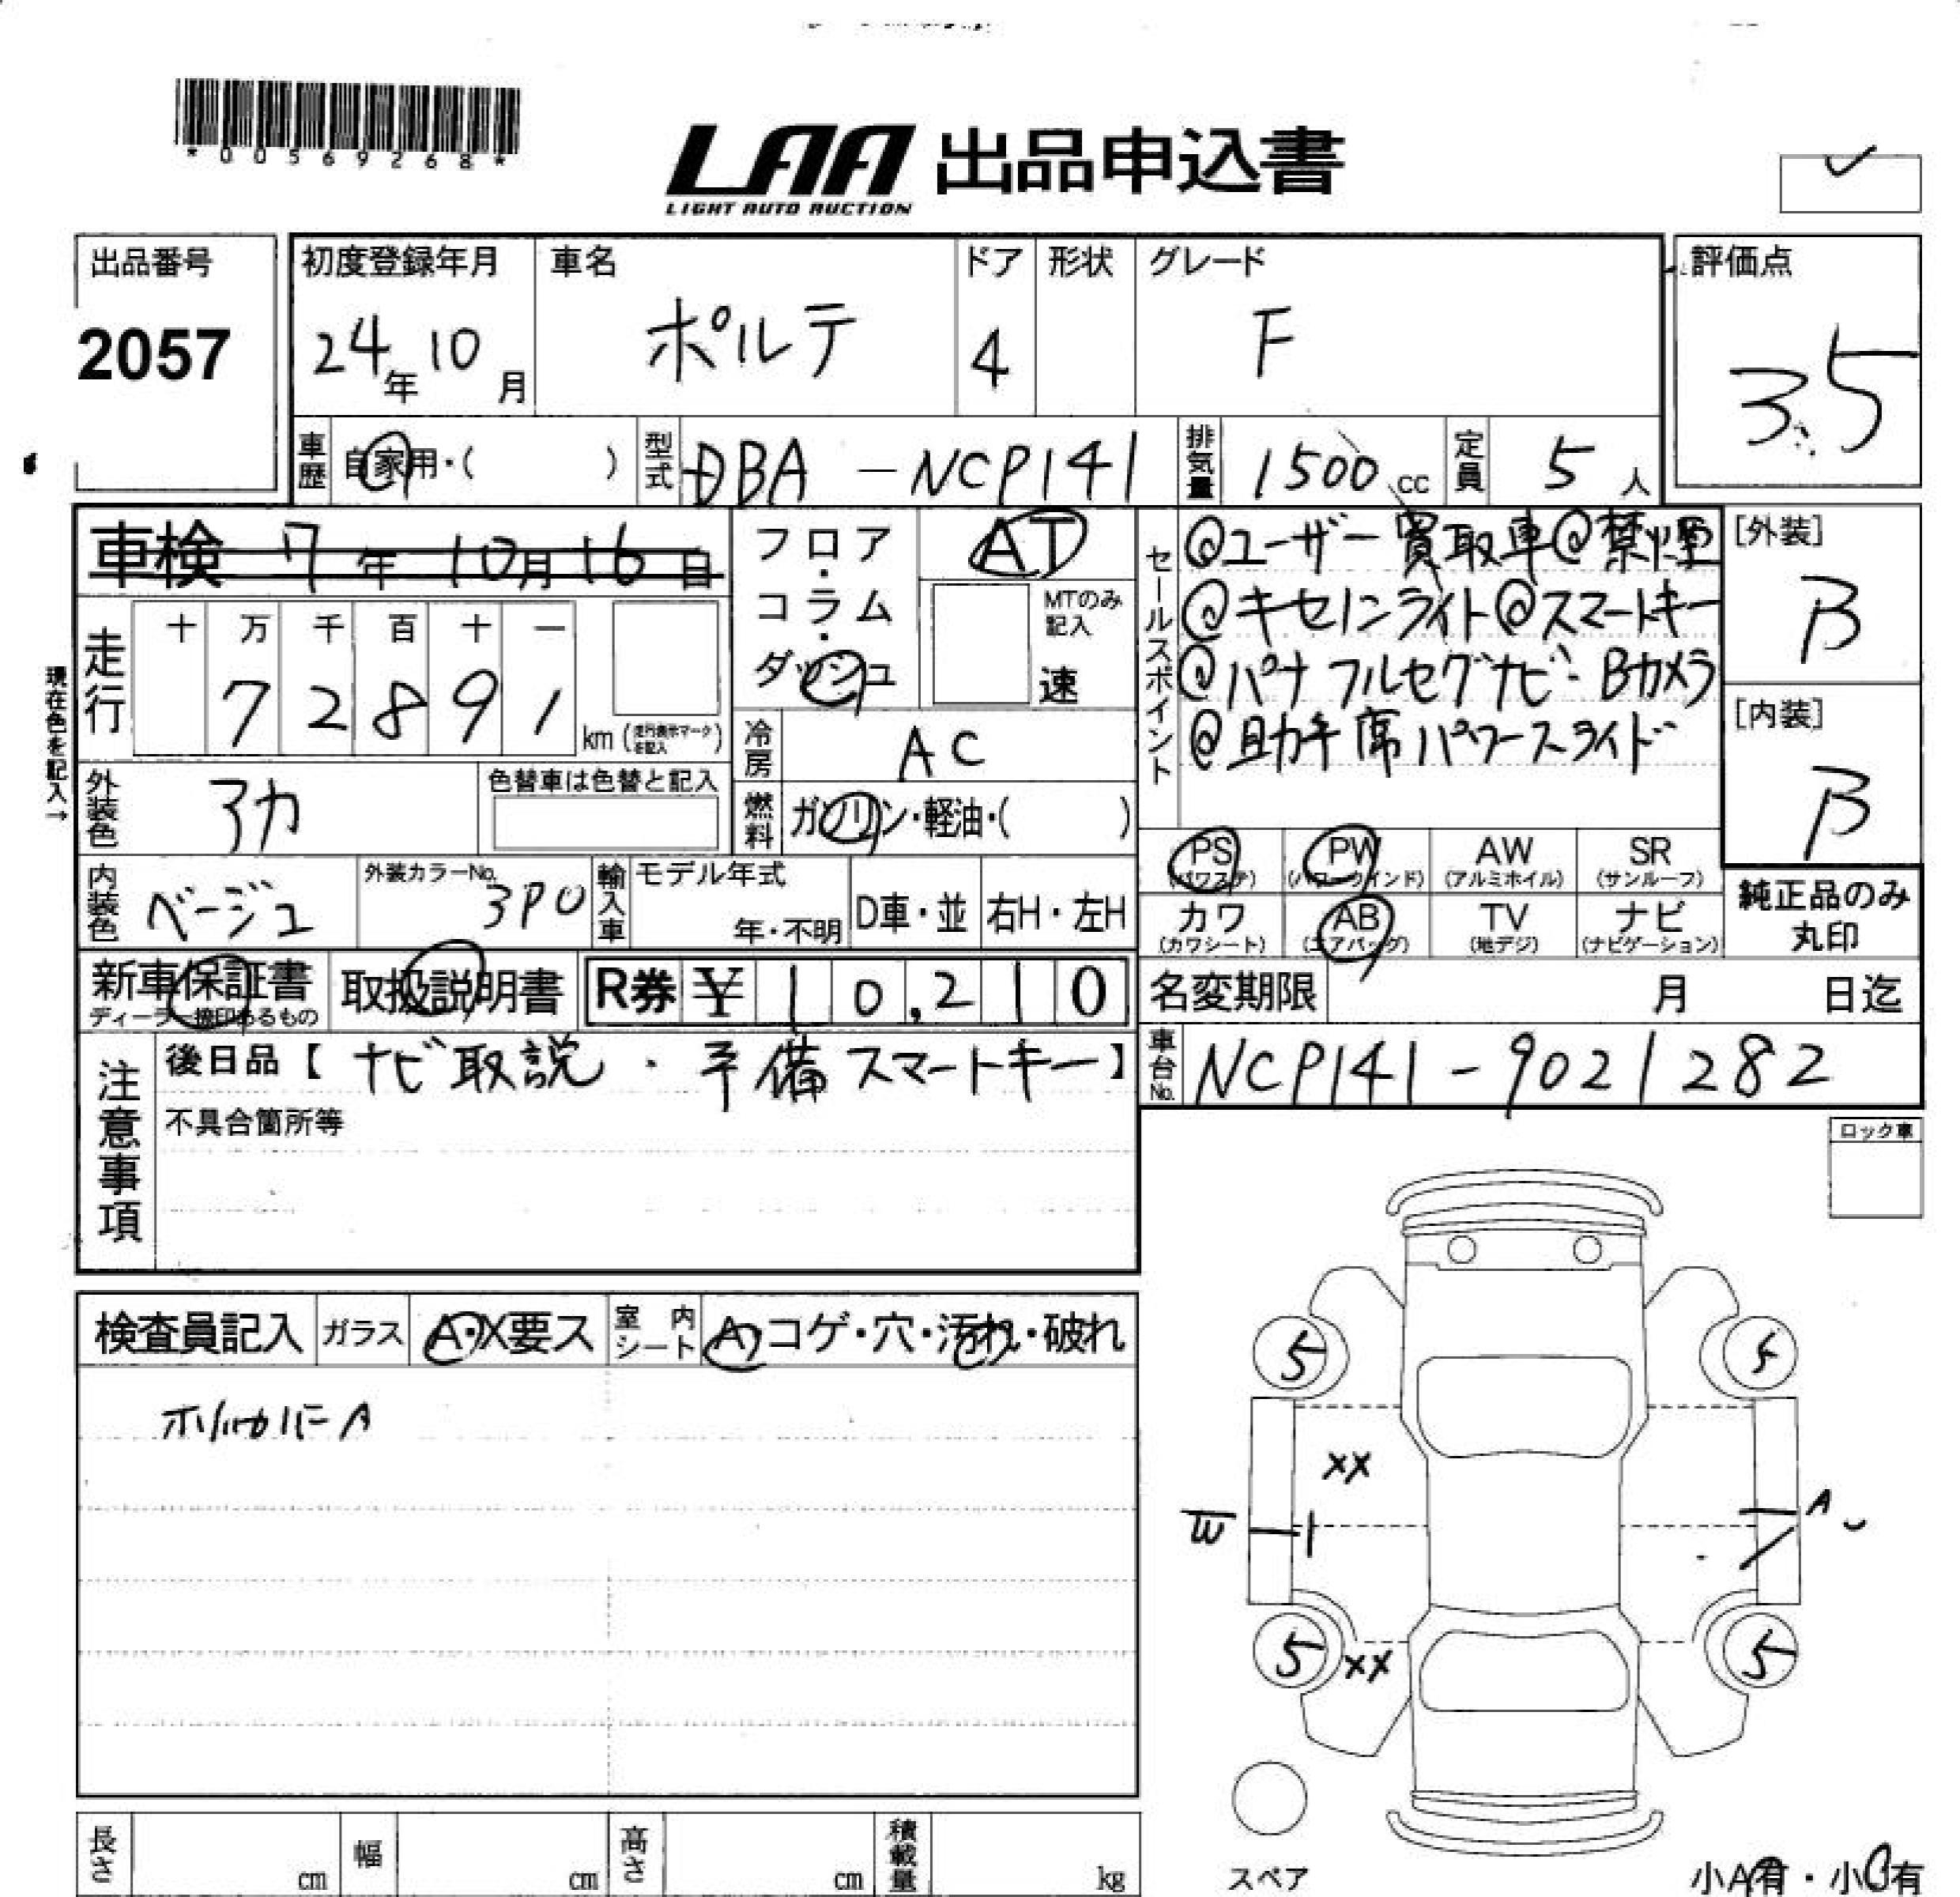 *00569268*
LAA 出品申込書
LIGHT AUTO AUCTION
出品番号
2057
初度登録年月
24年10月
車名
ポルテ
ドア
4
形状
グレード
F
評価点
3.5
車歴 自家用・( )
型式 DBA-NCP141
排気量 1500cc
定員 5人
車検 7年10月16日
現在色を記入→
走行 十 万 千 百 十 一
7 2 8 9 1 km (走行表示マークを記入)
フロア・コラム・ダッシュ
AT
MTのみ記入
速
冷房 AC
燃料 ガソリン・軽油・( )
外装色 アカ
色替車は色替と記入
内装色 ベージュ
外装カラーNo. 3P0
輸入車 モデル年式
年・不明 D車・並 右H・左H
セールスポイント
@ユーザー買取車@禁煙
@キセノンライト@スマートキー
@パナフルセグナビ・Bカメラ
@助手席パワースライド
[外装]
B
[内装]
B
PS (パワステ) PW (パワーウインド) AW (アルミホイル) SR (サンルーフ)
カワ (カワシート) AB (エアバッグ) TV (地デジ) ナビ (ナビゲーション)
純正品のみ丸印
新車保証書
ディーラー捺印あるもの
取扱説明書
R券 ¥ 10,210
名変期限 月 日迄
車台No. NCP141-9021282
注意事項
後日品【ナビ取説・予備スマートキー】
不具合箇所等
ロック車
検査員記入 ガラス A・X要ス 室内シート A・コゲ・穴・汚れ・破れ
5 5
XX
A
5 XX 5
スペア
小A有・小B有
長さ cm 幅 cm 高さ cm 積載量 kg